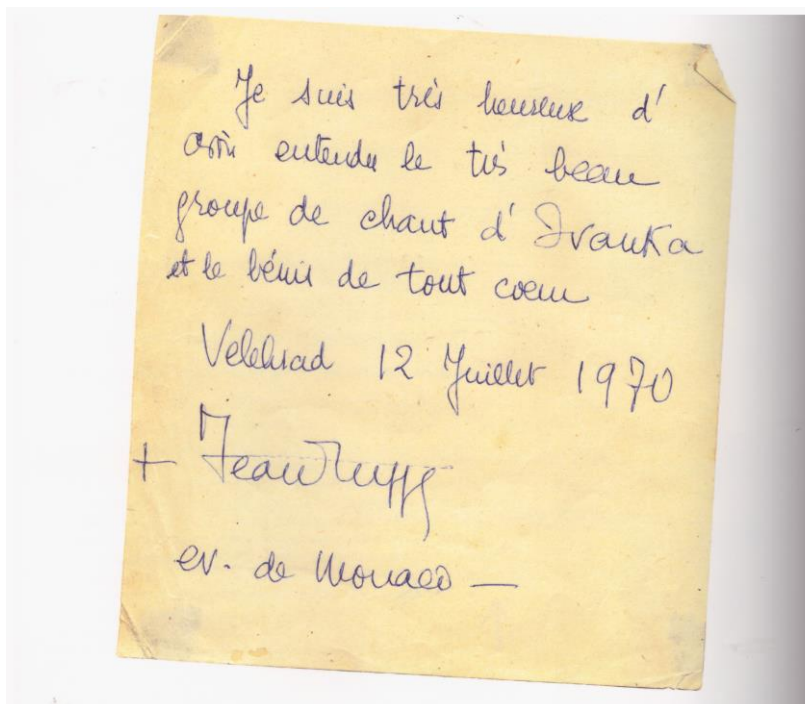 Je suis très heureux d'
avoir entendu le très beau
groupe de chant d'Ivanka
et le bénis de tout coeur
Velehrad 12 Juillet 1970
+ Jean Rupp
ev. de Monaco —